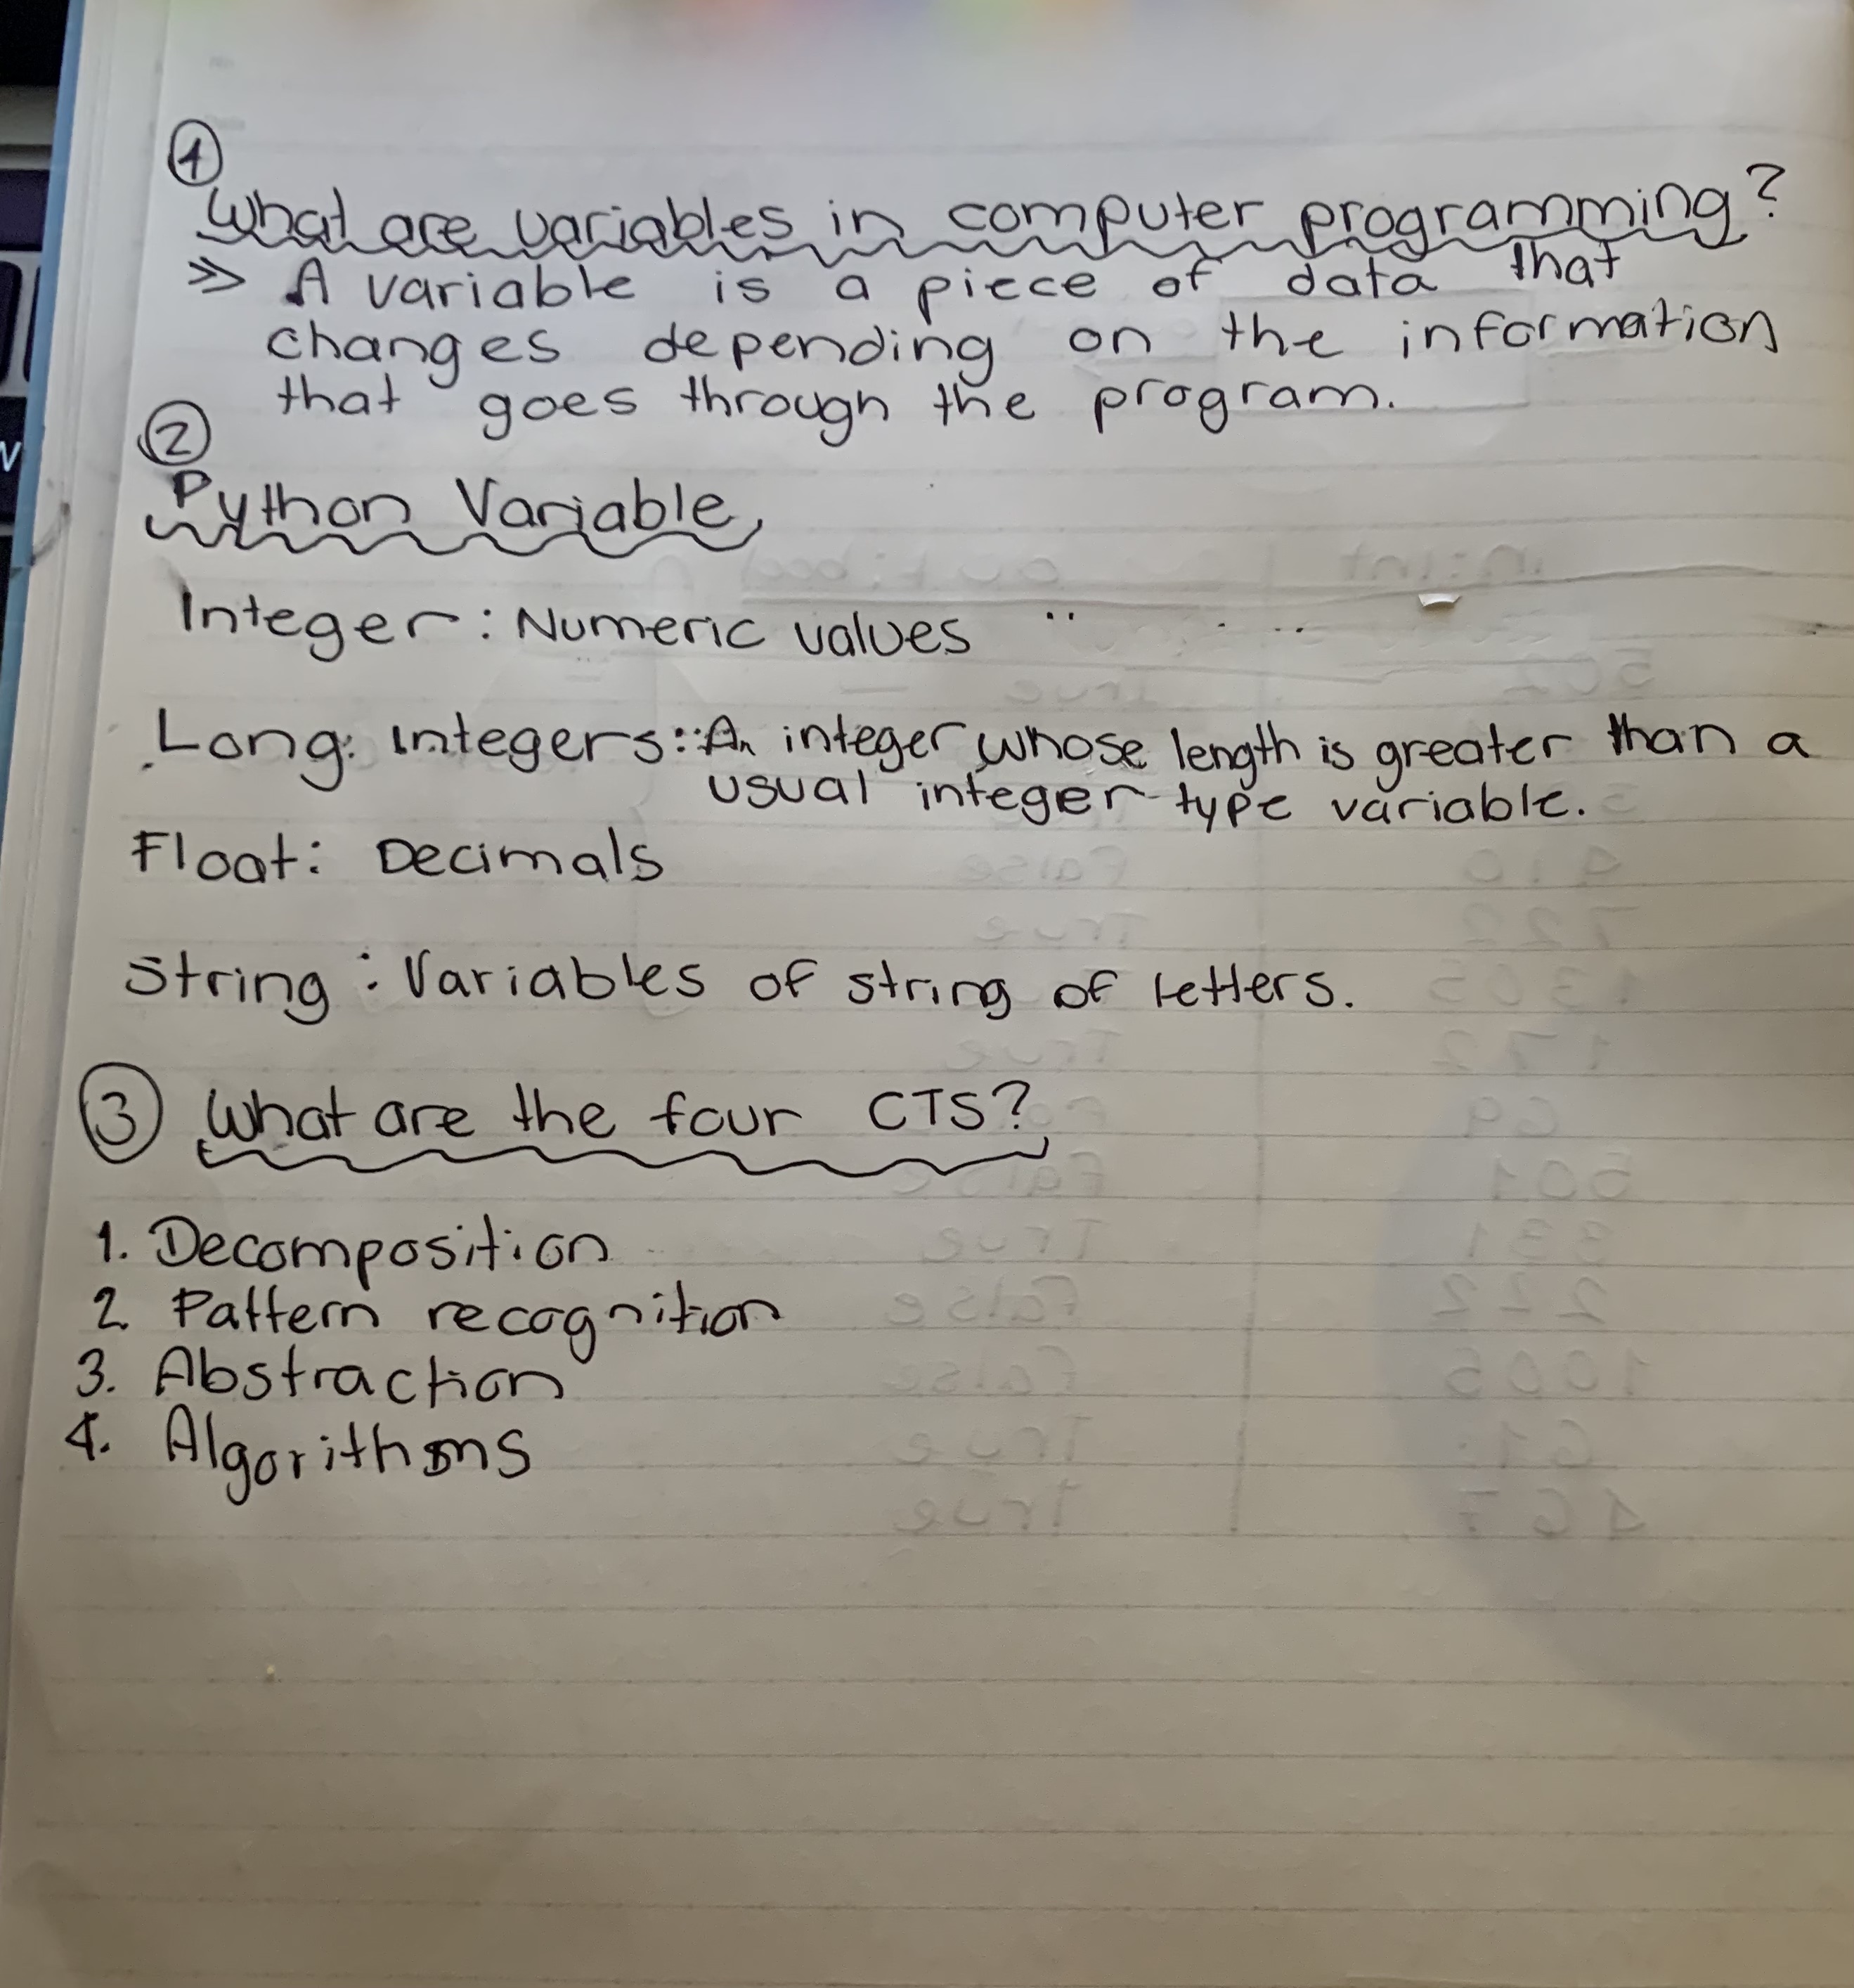 1
What are variables in computer programming?
>> A variable is a piece of data that
changes depending on the information
that goes through the program.
2
Python Variable,
Integer: Numeric values
Long: Integers: An integer whose length is greater than a
usual integer type variable.
Float: Decimals
String: Variables of string of letters.
3 What are the four CTS?
1. Decomposition
2. Pattern recognition
3. Abstraction
4. Algorithms